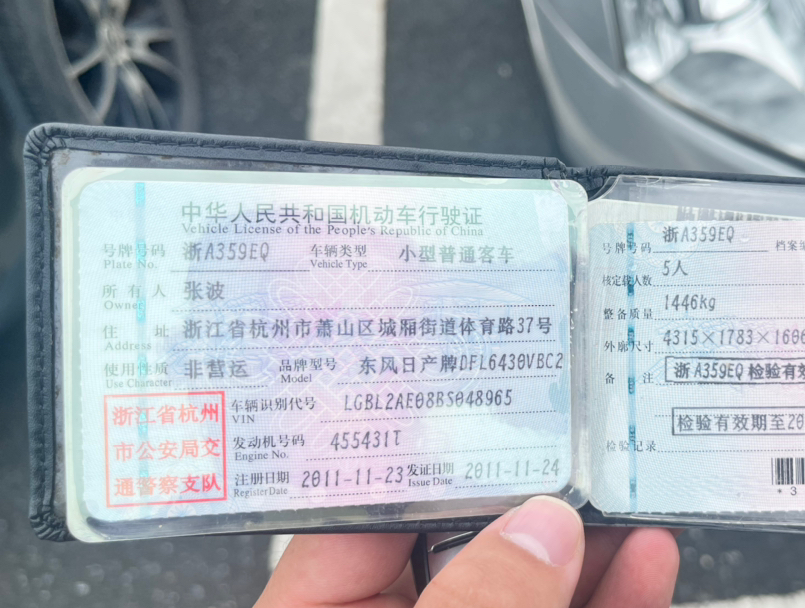 中华人民共和国机动车行驶证
Vehicle License of the People's Republic of China
号牌号码 浙A359EQ 车辆类型 小型普通客车
Plate No. Vehicle Type
所有人 张波
Owner
住址 浙江省杭州市萧山区城厢街道体育路37号
Address
使用性质 非营运 品牌型号 东风日产牌DFL6430VBC2
Use Character Model
浙江省杭州
市公安局交
通警察支队
车辆识别代号 LGBL2AE08BS048965
VIN
发动机号码 455431T
Engine No.
注册日期 2011-11-23 发证日期 2011-11-24
Register Date Issue Date
号牌号码 浙A359EQ 档案
核定载人数 5人
整备质量 1446kg
外廓尺寸 4315×1783×160
备注 浙A359EQ 检验有效
检验有效期至20
检验记录
*3